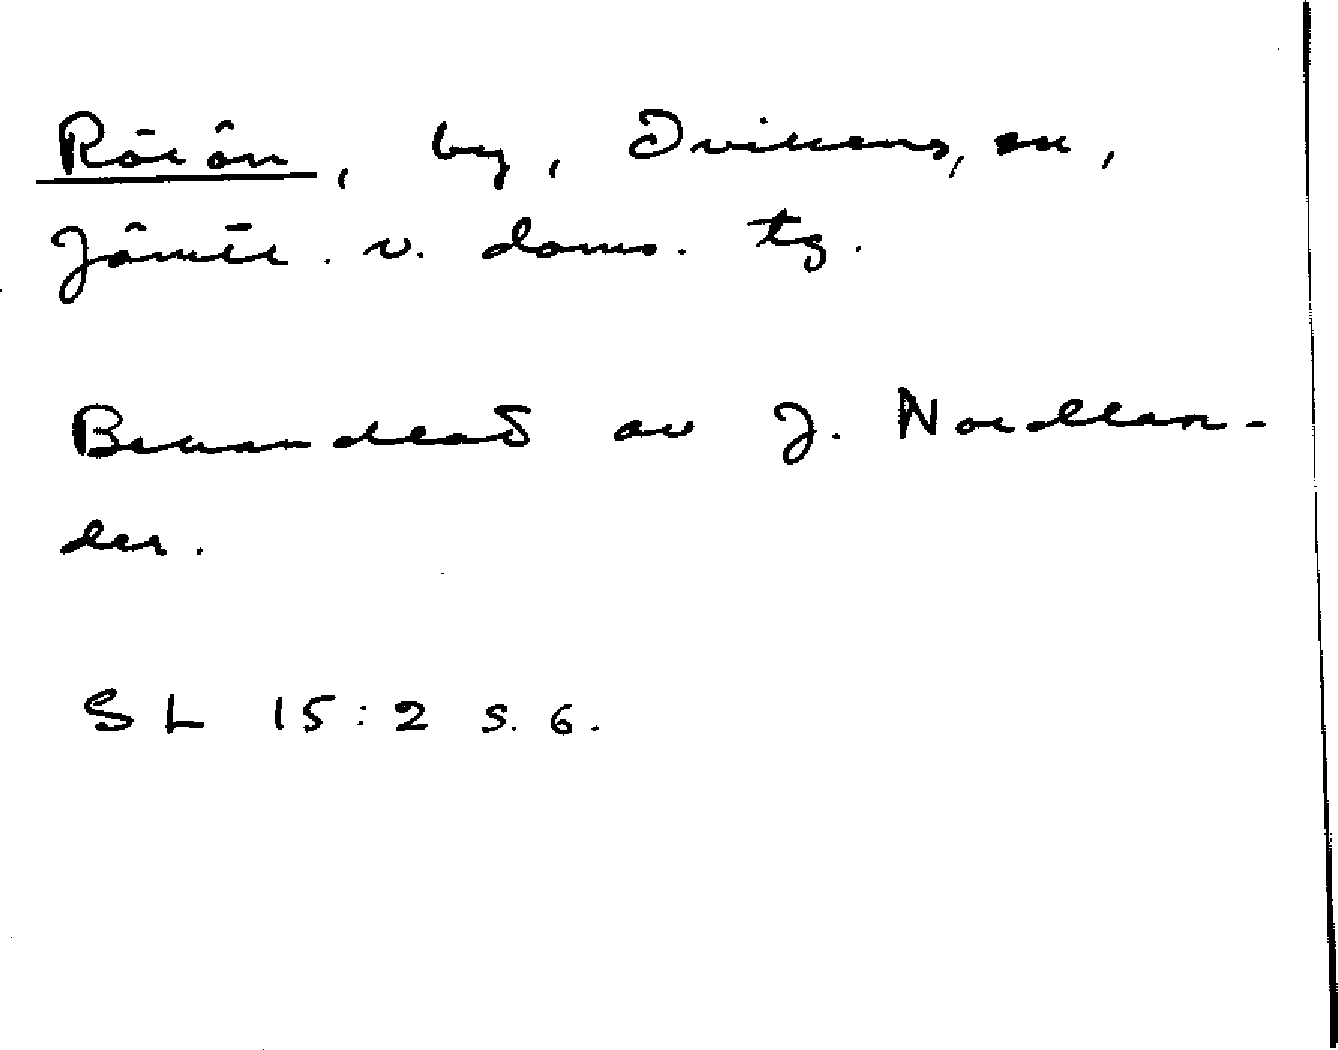 Rörön, by, Ovikens, sn,
Jämtl. v. doms. tg.
Behandlad av J. Nordlan-
der.
SL 15:2 s. 6.